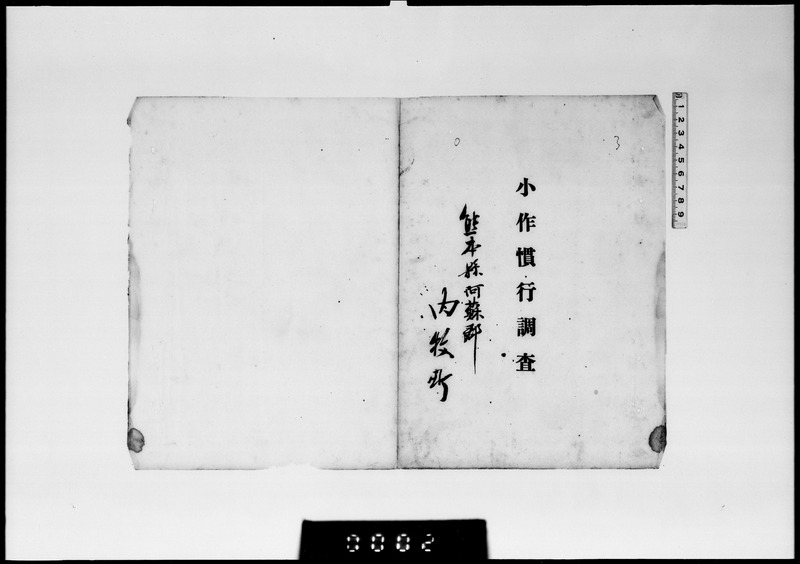 小作慣行調査
熊本縣阿蘇郡
内牧町
3
0
1 2 3 4 5 6 7 8 9
0002